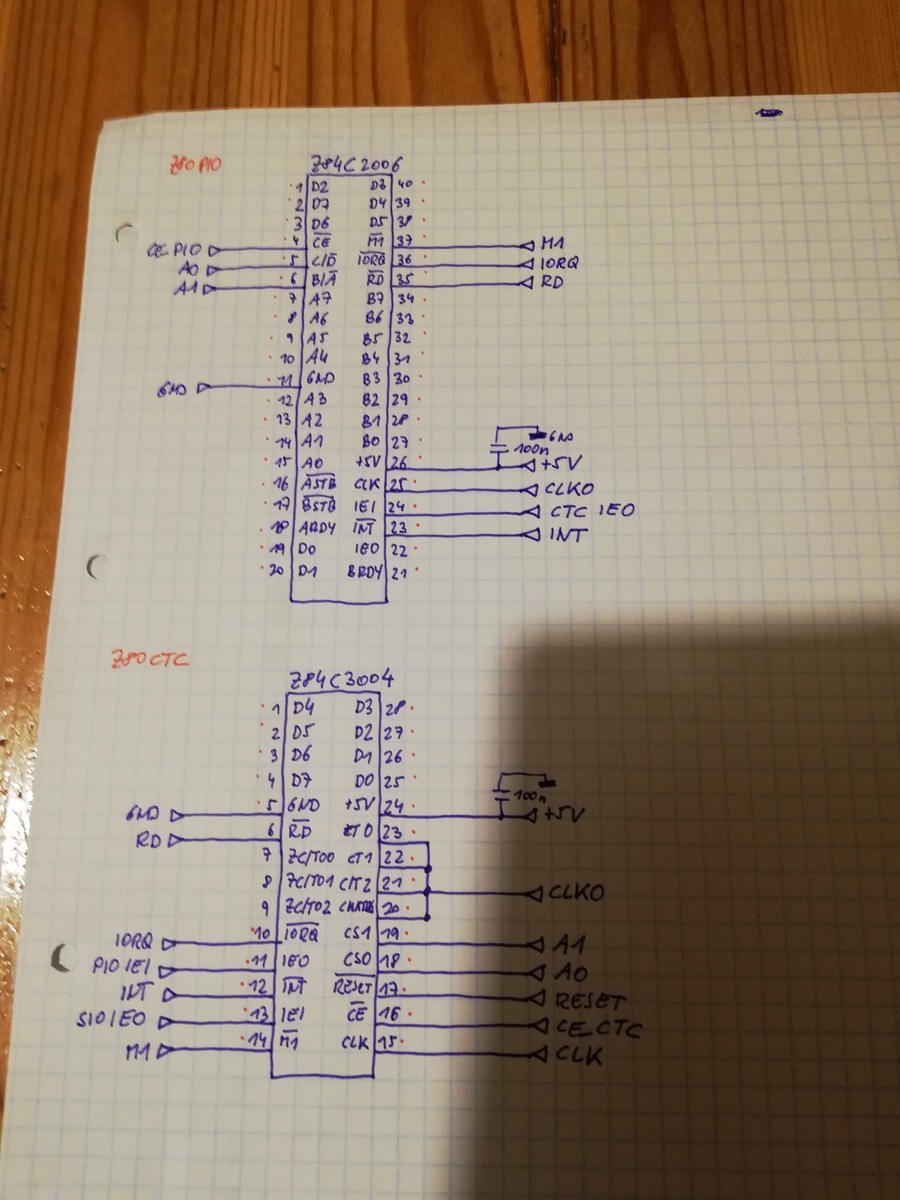 Z80 PIO
Z84C2006
1 D2 D3 40
2 D7 D4 39
3 D6 D5 38
CE PIO 4 C̅E̅ M̅1̅ 37 M1
A0 5 C/D̅ I̅O̅R̅Q̅ 36 IORQ
A1 6 B/A̅ R̅D̅ 35 RD
7 A7 B7 34
8 A6 B6 33
9 A5 B5 32
10 A4 B4 31
GND 11 GND B3 30
12 A3 B2 29
13 A2 B1 28
14 A1 B0 27 100n GND
15 A0 +5V 26 +5V
16 A̅S̅T̅B̅ CLK 25 CLK0
17 B̅S̅T̅B̅ IEI 24 CTC IEO
18 ARDY I̅N̅T̅ 23 INT
19 D0 IEO 22
20 D1 BRDY 21
Z80 CTC
Z84C3004
1 D4 D3 28
2 D5 D2 27
3 D6 D1 26
4 D7 D0 25 100n
GND 5 GND +5V 24 +5V
RD 6 R̅D̅ CT0 23
7 ZC/TO0 CT1 22
8 ZC/TO1 C/T2 21 CLK0
9 ZC/TO2 20
IORQ 10 I̅O̅R̅Q̅ CS1 19 A1
PIO IEI 11 IEO CS0 18 A0
INT 12 I̅N̅T̅ R̅E̅S̅E̅T̅ 17 RESET
SIO IEO 13 IEI C̅E̅ 16 CE_CTC
M1 14 M̅1̅ CLK 15 CLK